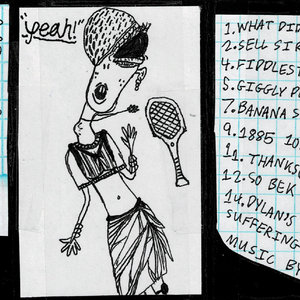 "yeah!"
1. WHAT DID
2. SELL
4. FIDDLES
5. GIGGLY
7. BANANA S
9. 1885 10
11. THANKS
12. SO BEK
14. DYLAN'S
SUFFERING
MUSIC BY